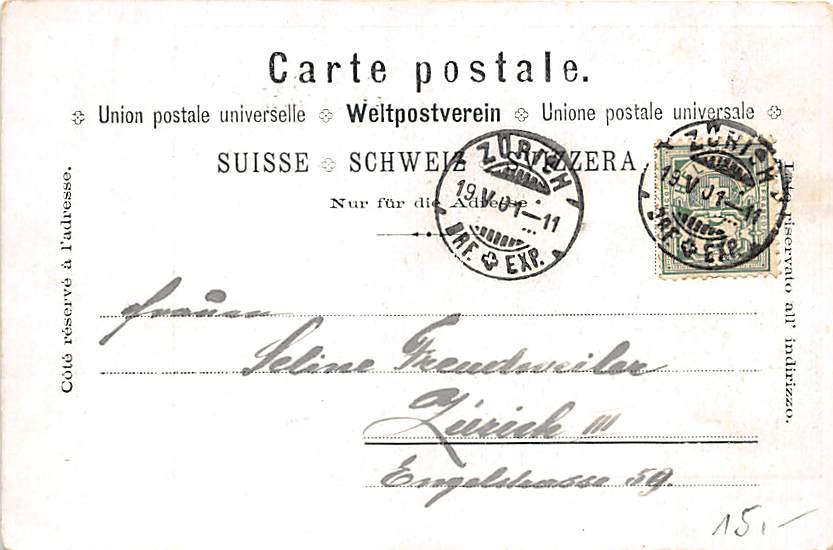 Carte postale.
Union postale universelle Weltpostverein Unione postale universale
SUISSE SCHWEIZ SVIZZERA
Nur für die Adresse
Côté réservé à l'adresse.
Lato riservato all' indirizzo.
ZÜRICH
19.V.01-11
BRF. EXP.
ZÜRICH
19.V.01-11
BRF. EXP.
Seline Freudweiler
Zürich III
Engelstrasse 59.
15.-